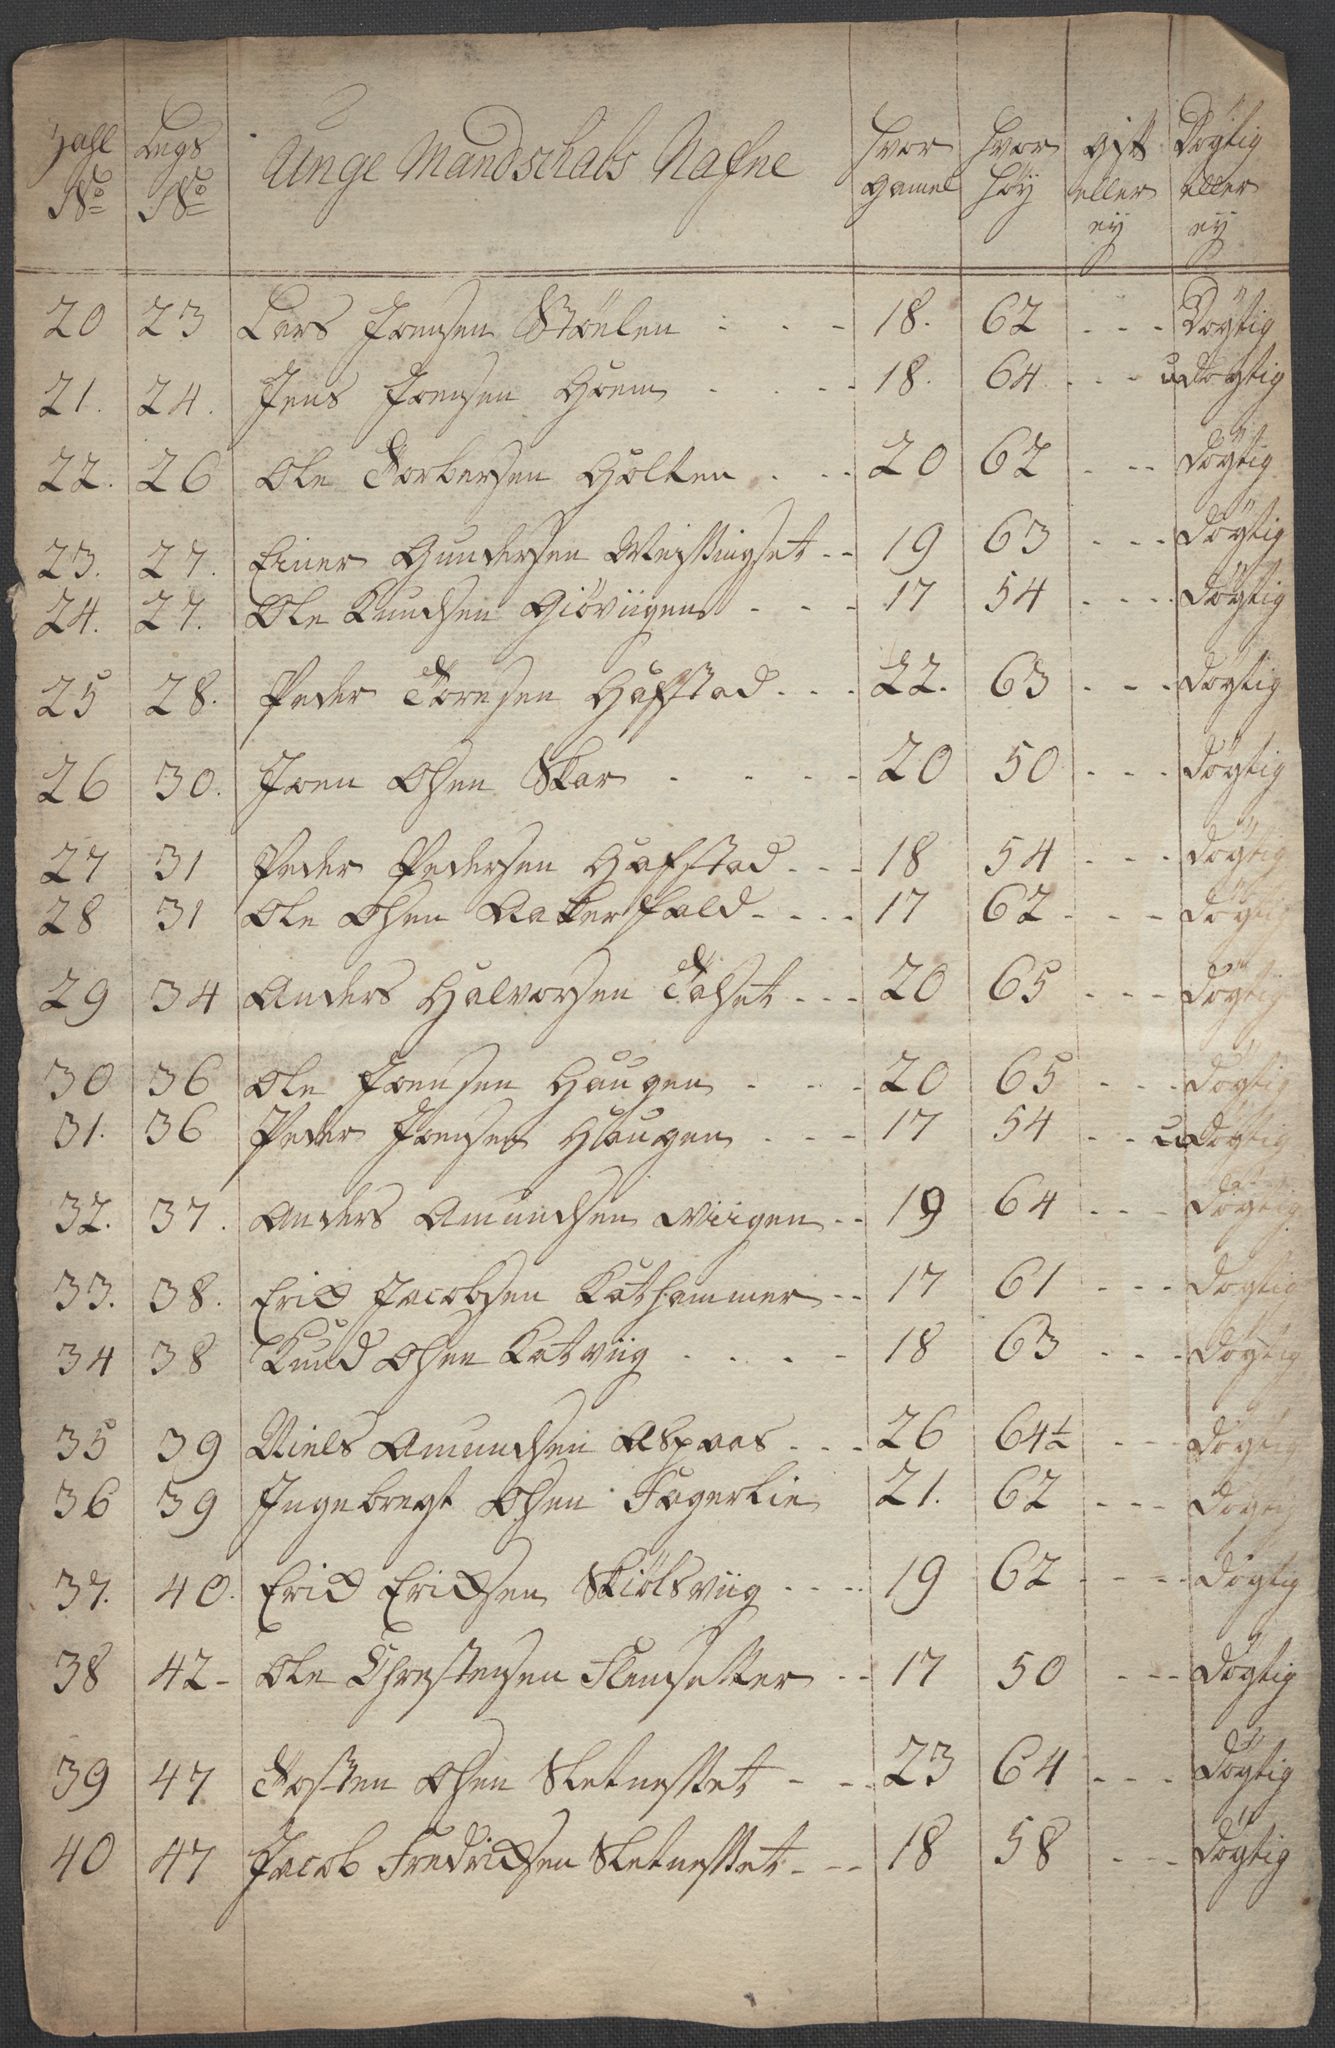 Tahl No Legs No Unge Mandschabs Nafne Hvor gamel Hvor Höy Gift eller ey Dögtig eller ey
20 23 Lars Joensen Stöelen 18. 62 - - - Dögtig
21. 24. Jens Joensen Hoem 18. 64 - - - uDögtig
22. 26 Ole Torbersen Holten 20 62 - - - Dögtig
23. 27. Einer Gundersen Meissingset 19 63 - - - Dögtig
24. 27. Ole Knudsen Giöviigen 17 54 - - - Dögtig
25 28. Peder Toresen Hafstad 22. 63 - - - Dögtig
26 30. Joen Olsen Skar 20 50 - - - Dögtig
27 31 Peder Pedersen Hafstad 18 54 - - - Dögtig
28 31 Ole Olsen Aakerfald 17 62 - - - Dögtig
29 34 Anders Halvorsen Talset 20 65 - - - Dögtig
30 36 Ole Joensen Haugen 20 65 - - - Dögtig
31. 36 Peder Joensen Haugen 17 54 - - - uDögtig
32. 37. Anders Amundsen Viigen 19 64 - - - Dögtig
33. 38. Erich Jacobsen Kathammer 17 61 - - - Dögtig
34 38 Knud Olsen Katviig 18 63 - - - Dögtig
35 39 Niels Amundsen Aspaas 26 64½ - - - Dögtig
36 39 Ingebregt Olsen Fagerlie 21. 62 - - - Dögtig
37. 40. Erich Erichsen Skiölsviig 19 62 - - - Dögtig
38 42 - Ole Christensen Flemsetter 17 50 - - - Dögtig
39 47 Tosten Olsen Sletnesset 23 64 - - - Dögtig
40 47 Jacob Fredrichsen Sletnesset 18 58 - - - Dögtig